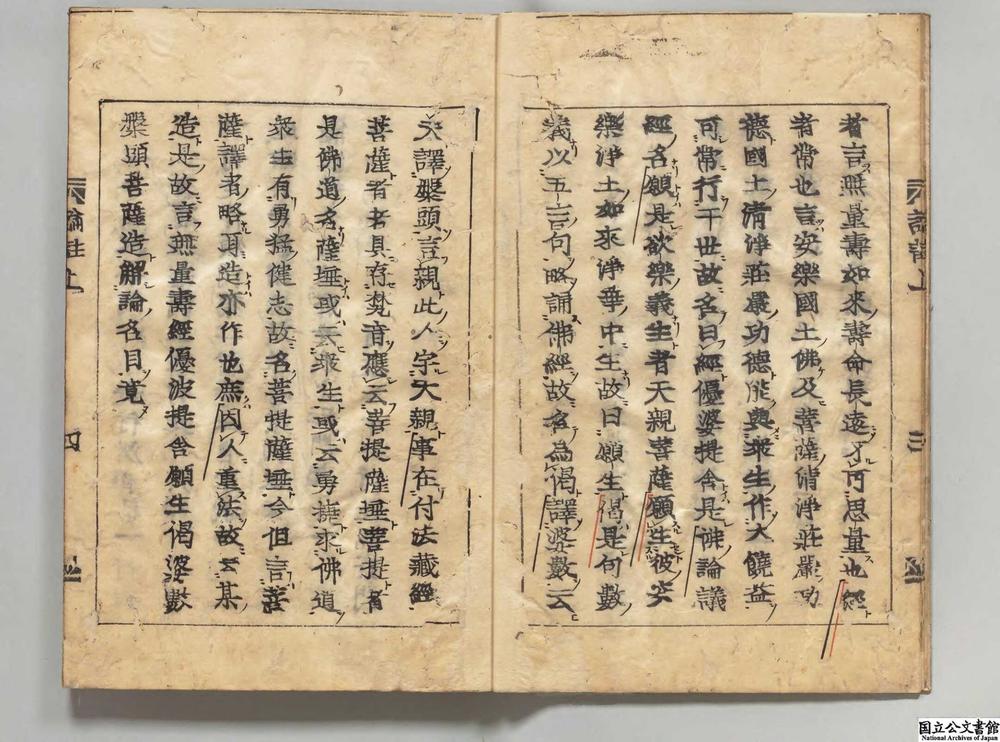 者言無量壽如來壽命長遠不可思量也經
者常也言安樂國土佛及菩薩清淨莊嚴功
德國土清淨莊嚴功德能與衆生作大饒益
可常行于世故名曰經優婆提舍是佛論議
經名願是欲樂義生者天親菩薩願生彼安
樂淨土如來淨華中生故曰願生偈是句數
義以五言句略誦佛經故名為偈譯婆數云
天譯槃頭言親此人字天親事在付法藏經
菩薩者若具存梵音應云菩提薩埵菩提者
是佛道名薩埵或云衆生或云勇揵求佛道
衆生有勇猛健志故名菩提薩埵今但言菩
薩譯者略耳造亦作也庶因人重法故云某
造是故言無量壽經優波提舍願生偈婆數
槃頭菩薩造解論名目竟
論註上
三
論註上
四
国立公文書館
National Archives of Japan